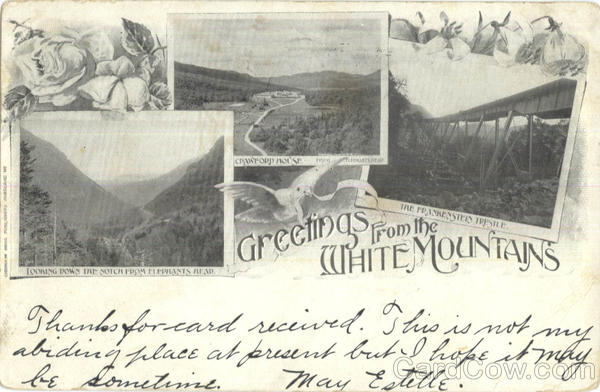 CRAWFORD HOUSE FROM ELEPHANTS HEAD.
THE FRANKENSTEIN TRESTLE.
LOOKING DOWN THE NOTCH FROM ELEPHANTS HEAD.
Greetings from the
WHITE MOUNTAINS
Thanks for card received. This is not my
abiding place at present but I hope it may
be sometime. May Estelle.
CardCow.com